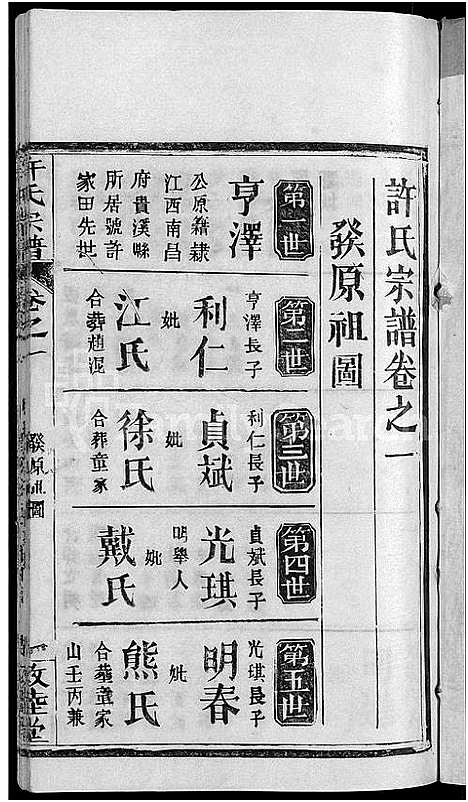 許氏宗譜卷之一
發原祖圖
第一世
亨澤
公原籍隸
江西南昌
府貴溪縣
所居號許
家田先世
第二世
亨澤長子
利仁
妣
江氏
合葬趙混
第三世
利仁長子
貞斌
妣
徐氏
合葬童家
第四世
貞斌長子
光琪
明舉人
妣
戴氏
第五世
光琪長子
明春
妣
熊氏
合葬童家
山壬丙兼
許氏宗譜
卷之一
發原祖圖
一
敦睦堂